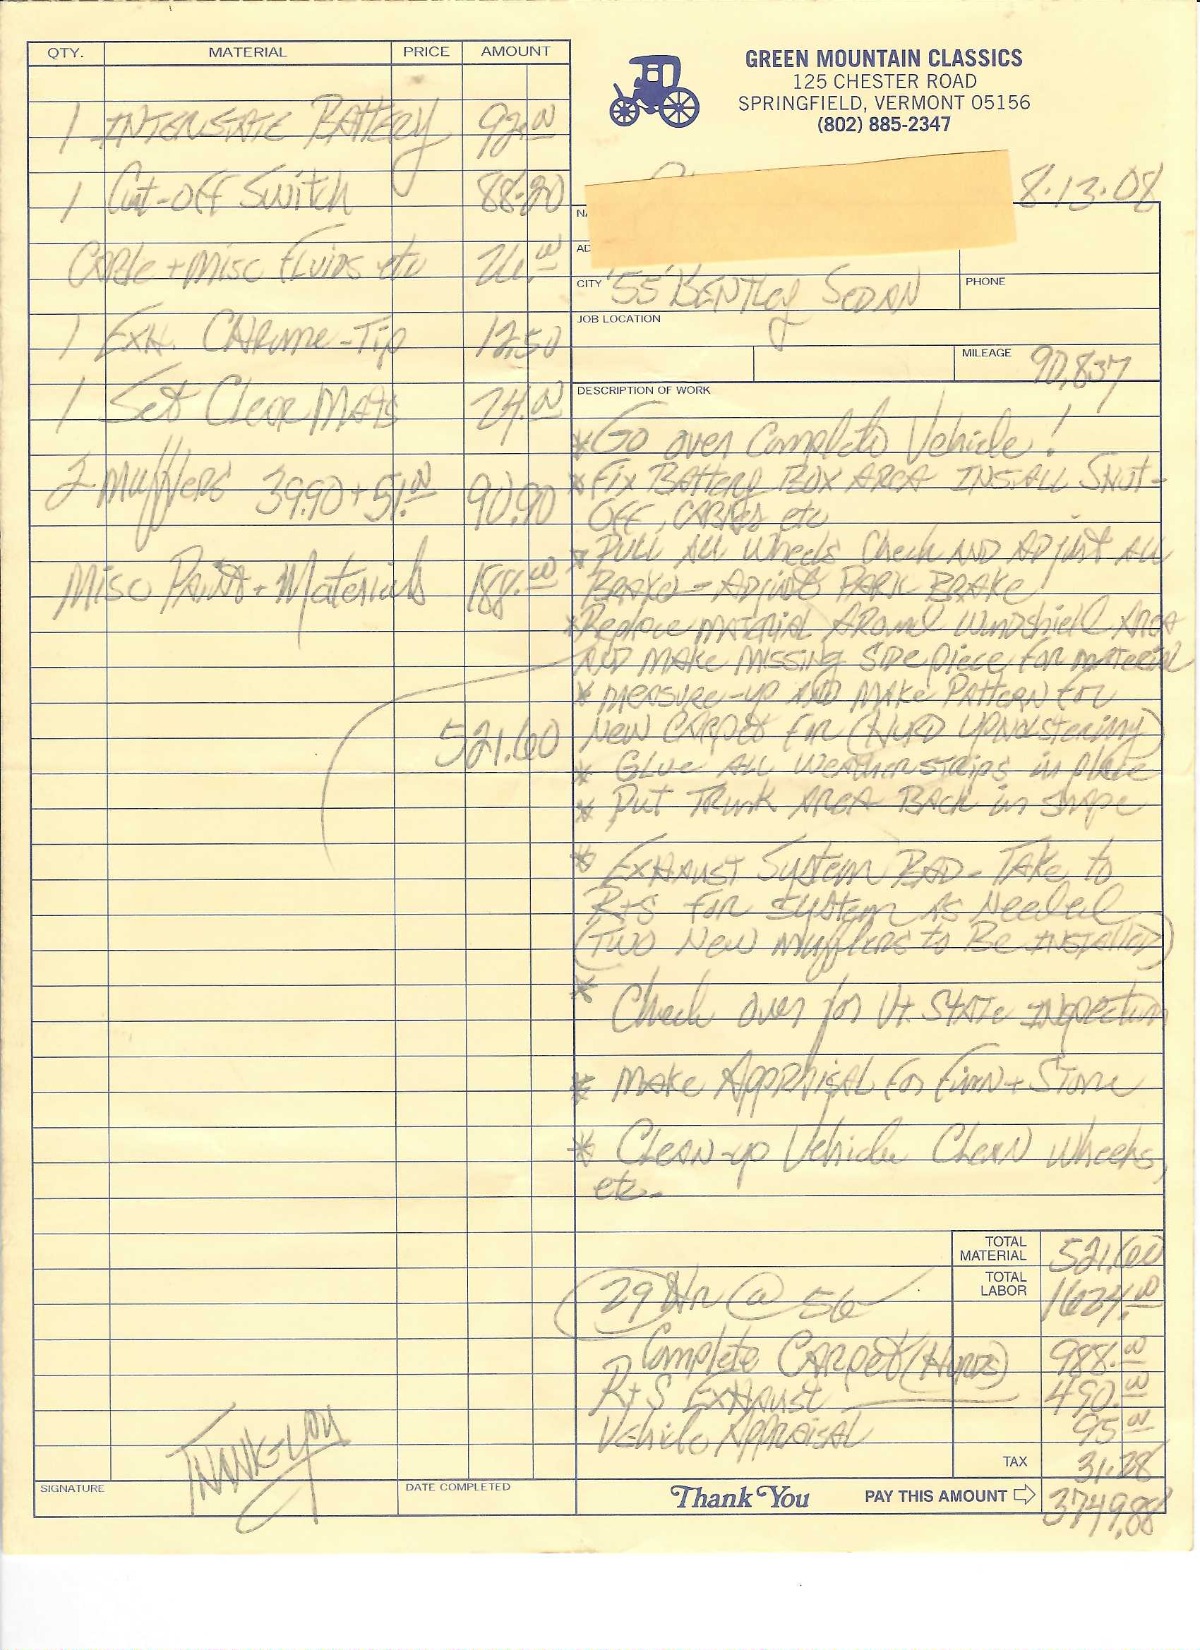 QTY. MATERIAL PRICE AMOUNT
1 INTERSTATE BATTERY 92.00
1 Cut-off Switch 88.20
CABle + Misc Fluids etc 26.00
1 Exh. CHrome-Tip 12.50
1 Set Clear Mats 24.00
2 Mufflers 39.90 + 51.00 90.90
Misc Paint + Materials 188.00
521.60
THANK-YOU
SIGNATURE DATE COMPLETED
GREEN MOUNTAIN CLASSICS
125 CHESTER ROAD
SPRINGFIELD, VERMONT 05156
(802) 885-2347
8.13.08
CITY '55' BENTLEY SEDAN PHONE
JOB LOCATION
MILEAGE 90,837
DESCRIPTION OF WORK
* Go over Complete Vehicle!
* Fix BATTery BOX AREA INSTALL SHUT-
OFF, CABles etc
* PULL ALL Wheels Check AND ADjust ALL
BRAKes - ADjust PARK BRAKE
* Replace MATERIAL AROUND Windshield AREA
AND MAKE MISSING SIDE piece For material
* MEASURE-up AND MAKE PATTERN For
New CARPET For (HURD UPHOLSTERING)
* GLUE ALL WEATHERSTRIPS in place
* Put TRUNK AREA BACK in SHAPE
* EXHAUST System BAD - TAKE to
R+S For SYSTEM AS Needed
(TWO New Mufflers to Be INSTALLED)
* Check over for Vt. STATE INSPECTION
* MAKE AppRAISAL For Firm + STONE
* CLEAN-up Vehicle CLEAN Wheels,
etc.
TOTAL MATERIAL 521.60
29 Hr @ 56 TOTAL LABOR 1624.00
Complete CARPET (HURDS) 988.00
R+S EXHAUST 490.00
Vehicle AppRAISAL 95.00
TAX 31.28
Thank You PAY THIS AMOUNT 3749.88